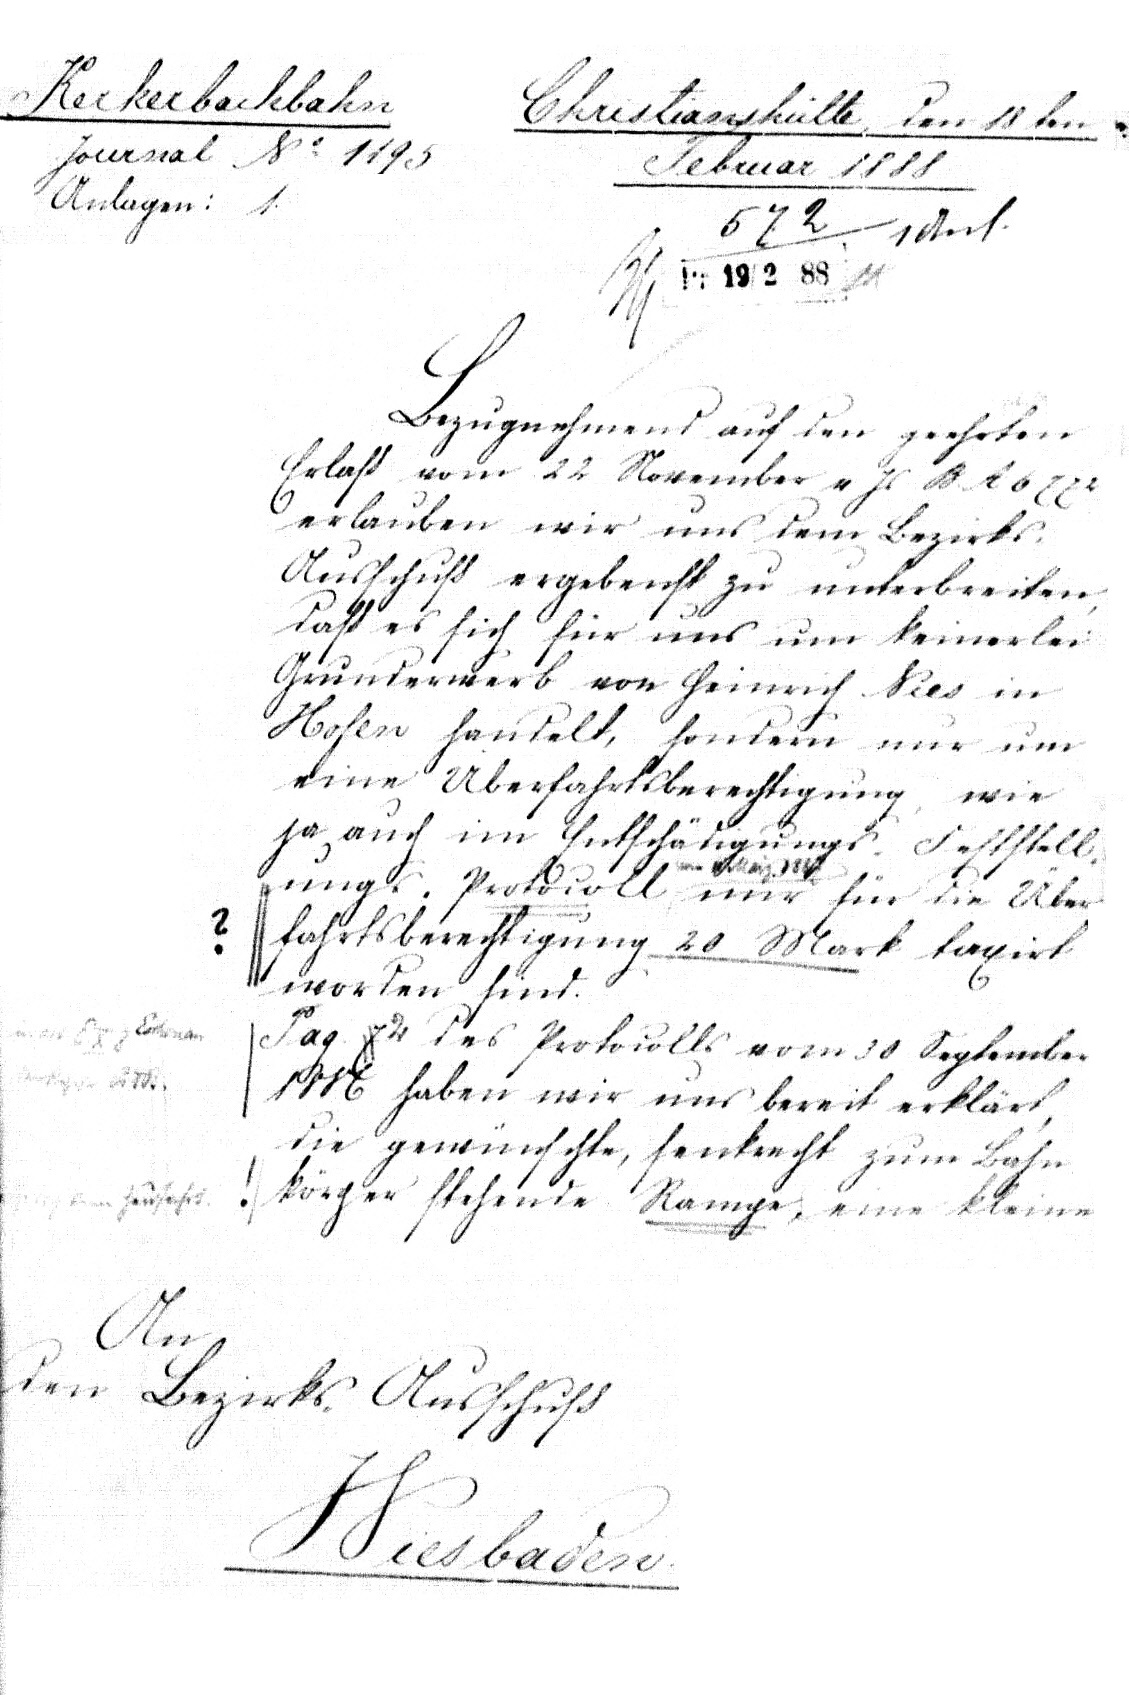 Kerkerbachbahn
Christianshütte, den 18 ten
Journal No 1195
Februar 1888
Anlagen: 1.
572 1 Anl.
Pr: 19/2 88
Bezugnehmend auf den geehrten
Erlaß vom 22 November v Js B A
erlauben wir uns dem Bezirks-
Ausschuß ergebenst zu unterbreiten,
daß es sich für uns um keinerlei
Grunderwerb von Heinrich Nies in
Hofen handelt, sondern nur um
eine Überfahrtsberechtigung, wie
ja auch im Entschädigungs-Feststell-
ungs-Protocoll nur für die Über
? fahrtsberechtigung 20 Mark taxirt
worden sind.
Pag. 72 des Protocolls vom 30 September
1886 haben wir uns bereit erklärt,
die gewünschte, senkrecht zum Bahn
! körper stehende Rampe, eine kleine
An
den Bezirks-Ausschuß
Wiesbaden.